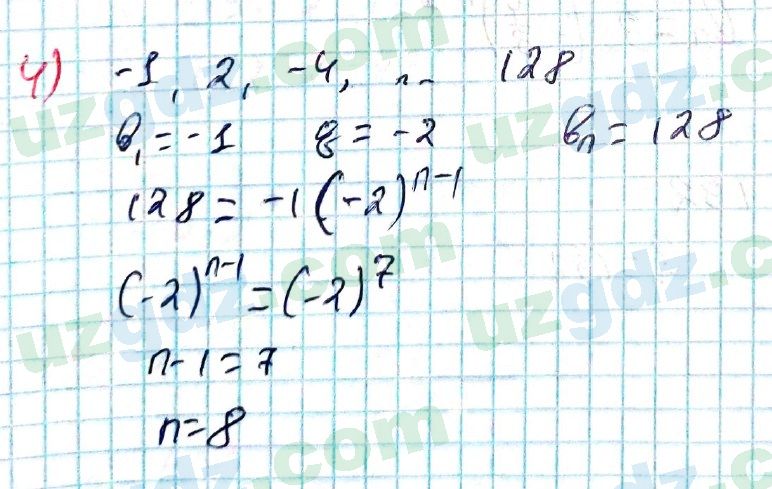 4) -1, 2, -4, ... 128
b₁ = -1 q = -2 bₙ = 128
128 = -1(-2)ⁿ⁻¹
(-2)ⁿ⁻¹ = (-2)⁷
n-1 = 7
n = 8
uzgdz.com
uzgdz.com
uzgdz.com
uzgdz.com
uzgdz.com
uzgdz.com